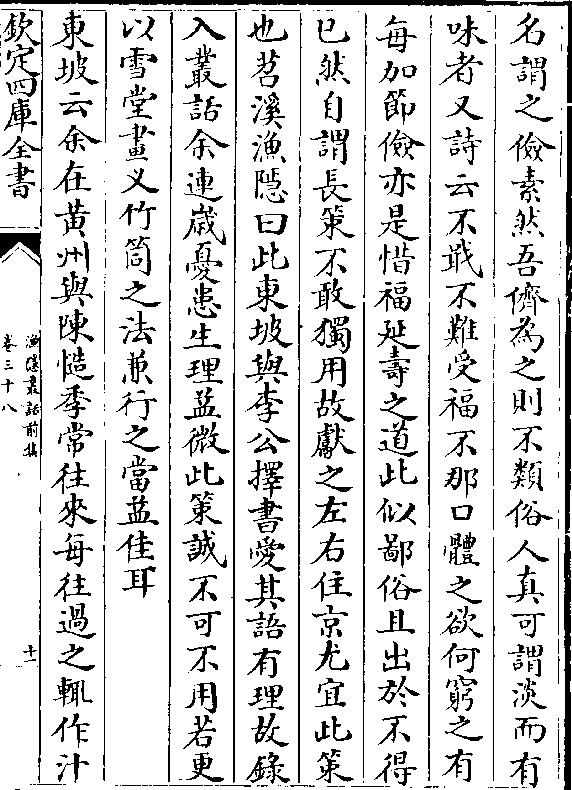 名謂之儉素然吾儕為之則不類俗人真可謂淡而有
味者又詩云不戢不難受福不那口體之欲何窮之有
每加節儉亦是惜福延壽之道此似鄙俗且出於不得
已然自謂長策不敢獨用故獻之左右住京尤宜此策
也苕溪漁隱曰此東坡與李公擇書愛其語有理故錄
入叢話余連歳憂患生理益微此策誠不可不用若更
以雪堂畫义竹筒之法兼行之當益佳耳
東坡云余在黄州與陳慥季常往來每往過之輒作汁
欽定四庫全書
漁隱叢話前集
卷三十八
十一